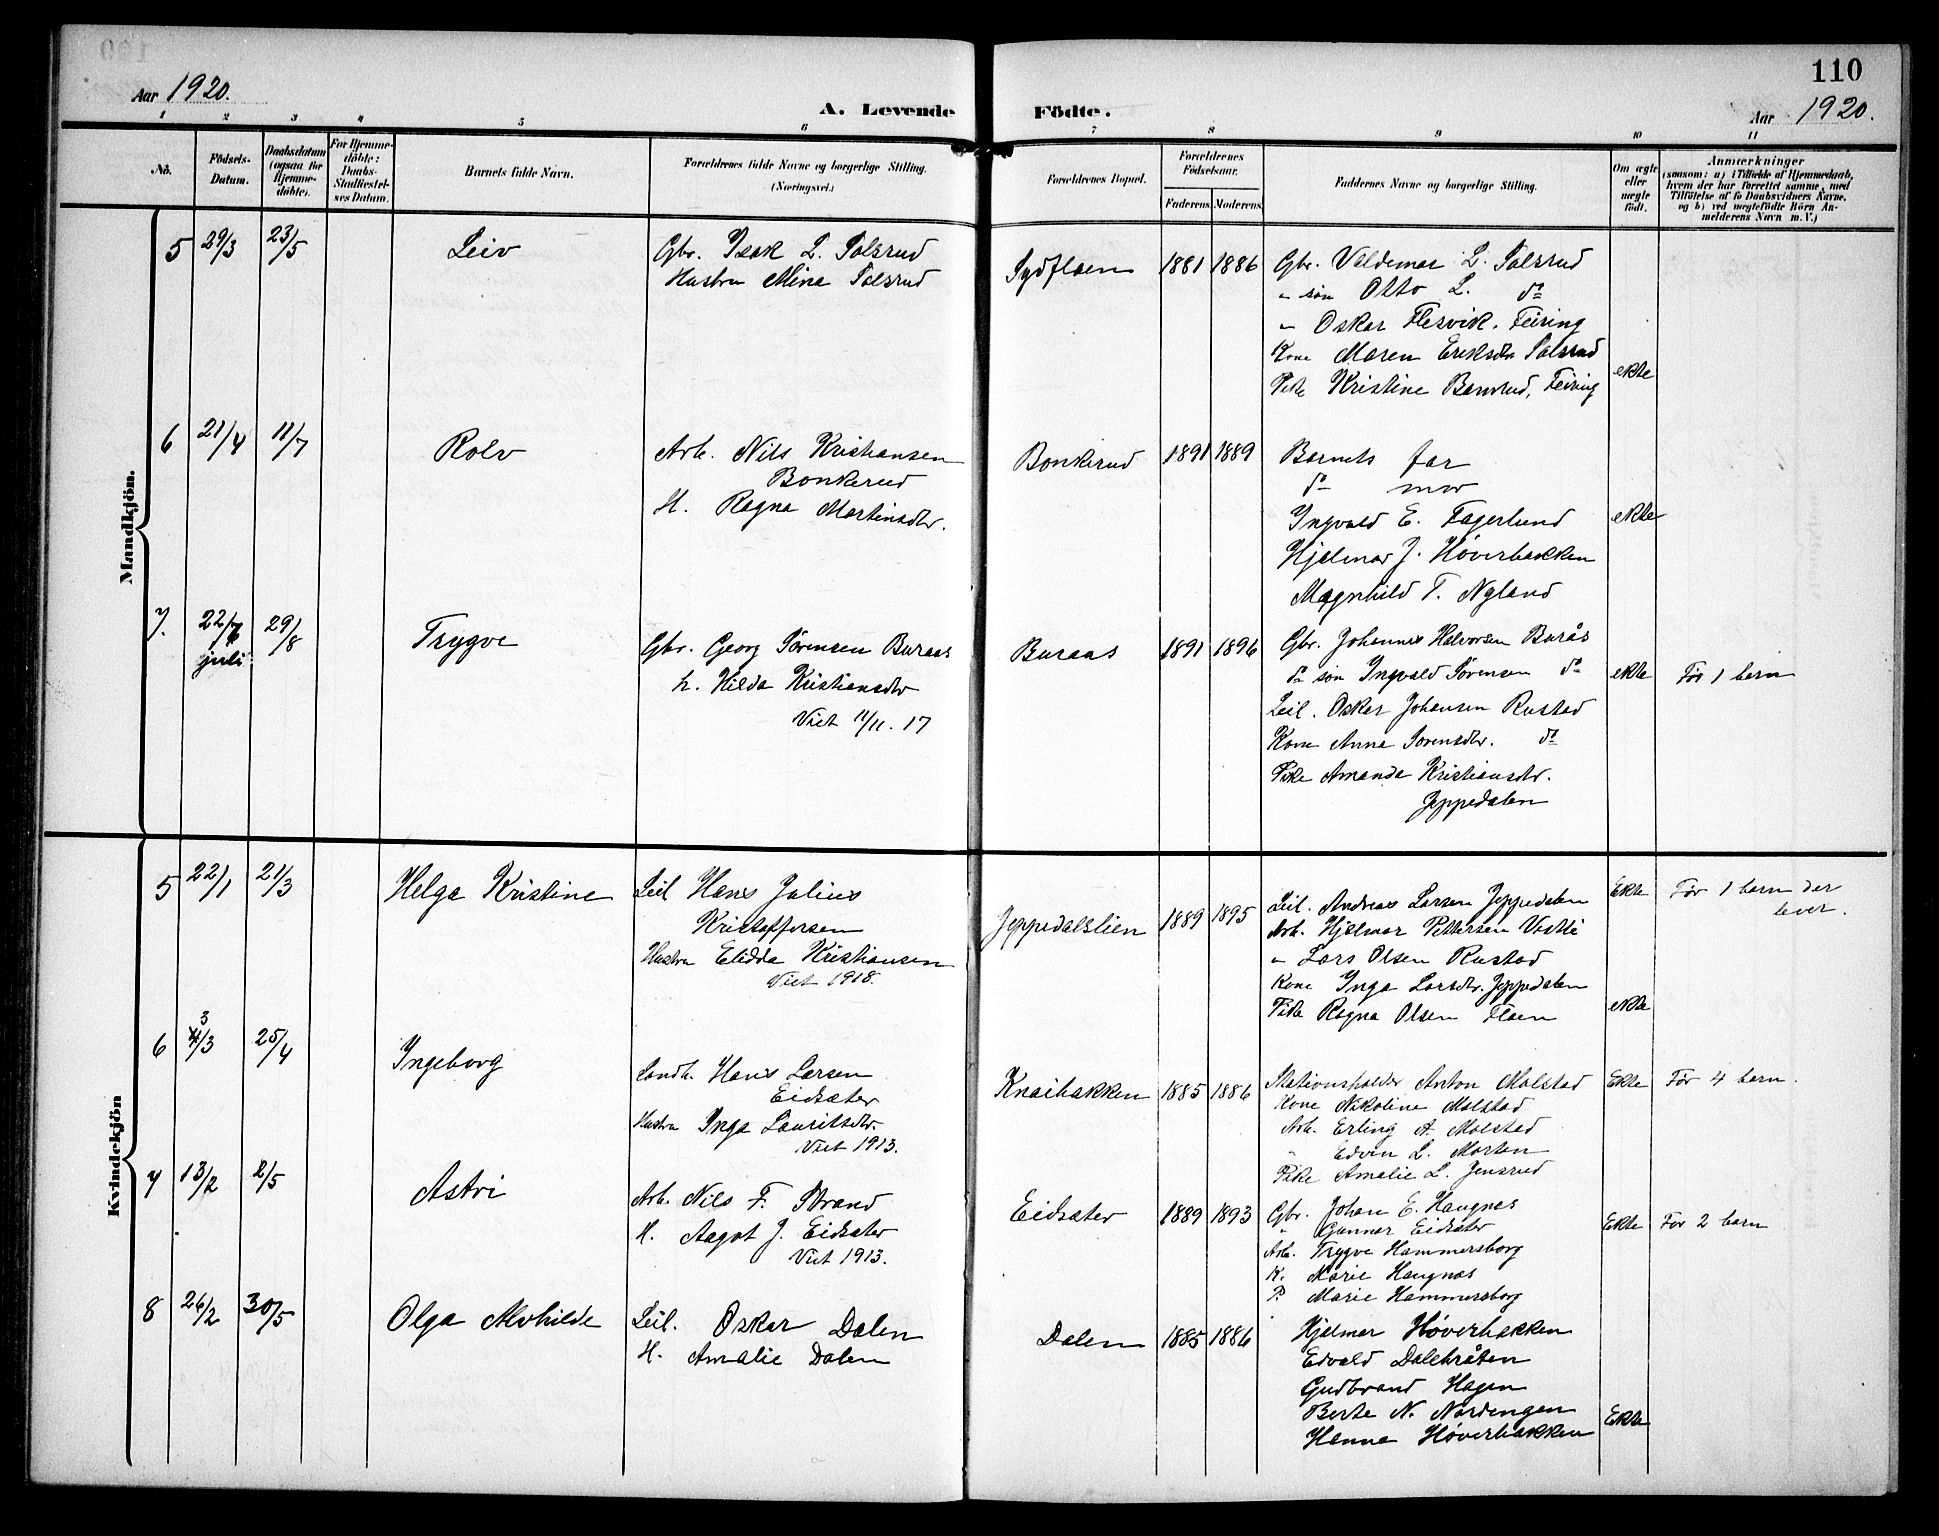 110
Aar 1920.
A. Levende Födte.
Aar 1920.
1 2 3 4 5 6 7 8 9 10 11
No.
Födsels-
Datum.
Daabsdatum
(ogsaa for
Hjemme-
döbte).
For Hjemme-
döbte:
Daabs-
Stadfæstel-
ses Datum.
Barnets fulde Navn.
Forældrenes fulde Navne og borgerlige Stilling.
(Næringsvei.)
Forældrenes Bopæl.
Forældrenes
Födselsaar.
Faderens. Moderens.
Faddernes Navne og borgerlige Stilling.
Om ægte
eller
uægte
födt.
Anmærkninger
(saasom: a) i Tilfælde af Hjemmedaab,
hvem der har forrettet samme, med
Tilföielse af to Daabsvidners Navne,
og b) ved uægtefödte Börn An-
melderens Navn m. V.)
Mandkjön.
5 29/3 23/5 Leiv
Gbr. Isak L. Salsrud
Hustru Mina Salsrud
Sydfloen 1881 1886
Gbr. Valdemar L. Salsrud
" søn Otto L. do
" Oskar Flesvik, Feiring
Kone Maren Eriksdtr Salsrud
Pike Kristine Bamrud, Feiring
ekte
6 21/4 11/7 Rolv
Arb. Nils Kristiansen
Bonkerud
H. Ragna Martinsdtr.
Bonkerud 1891 1889
Barnets far
do mor
Ingvald E. Fagerlund
Hjalmar J. Høverbakken
Magnhild T. Nyland
ekte
7. 22/7
juli
29/8 Trygve
Gbr. Georg Sørensen Buraas
h. Hilda Kristiansdtr
Viet 11/11. 17
Buraas 1891 1896
Gbr. Johannes Halvorsen Burås
do søn Ingvald Sørensen do
Leil. Oskar Johansen Rustad
Kone Anna Sørensdtr. do
Pike Amanda Kristiansdtr.
Jeppedalen
ekte Før 1 barn
Kvindekjön
5 22/1 21/3 Helga Kristine
Leil Hans Julius
Kristoffersen
Hustru Elidda Kristiansen
Viet 1918.
Jeppedalslien 1889 1895
Leil. Andreas Larsen Jeppedalen
Arb. Hjalmar Pettersen Vestli
" Lars Olsen Rustad
Kone Inga Larsdtr. Jeppedalen
Pike Ragna Olsen Floen
Ekte Før 1 barn der
lever.
ekte
6 3/3 25/4 Ingeborg
Landh. Hans Larsen
Eidsæter
Hustru Inga Lauritsdtr.
Viet 1913.
Knaibakken 1885 1886
Stationsholder Anton Molstad
Kone Nikoline Molstad
Arb. Erling A. Molstad
" Edvin L. Morten
Pike Amalie L. Jensrud
Ekte Før 4 barn.
7 13/2 2/5 Astri
Arb. Nils F. Strand
H. Aagot J. Eidsæter
Viet 1913.
Eidsæter 1889 1893
Gbr. Johan E. Haugnæs
" Gunnar Eidsæter
Arb. Trygve Hammersborg
K. Marie Haugnæs
P. Marie Hammersborg
Ekte Før 2 barn
8 26/2 30/5 Olga Alvhilde
Leil. Oskar Dalen
H. Amalie Dalen
Dalen 1885 1886
Hjalmar Høverbakken
Edvald Dalebråten
Gudbrand Hagen
Berte N. Nordengen
Hanna Høverbakken
Ekte